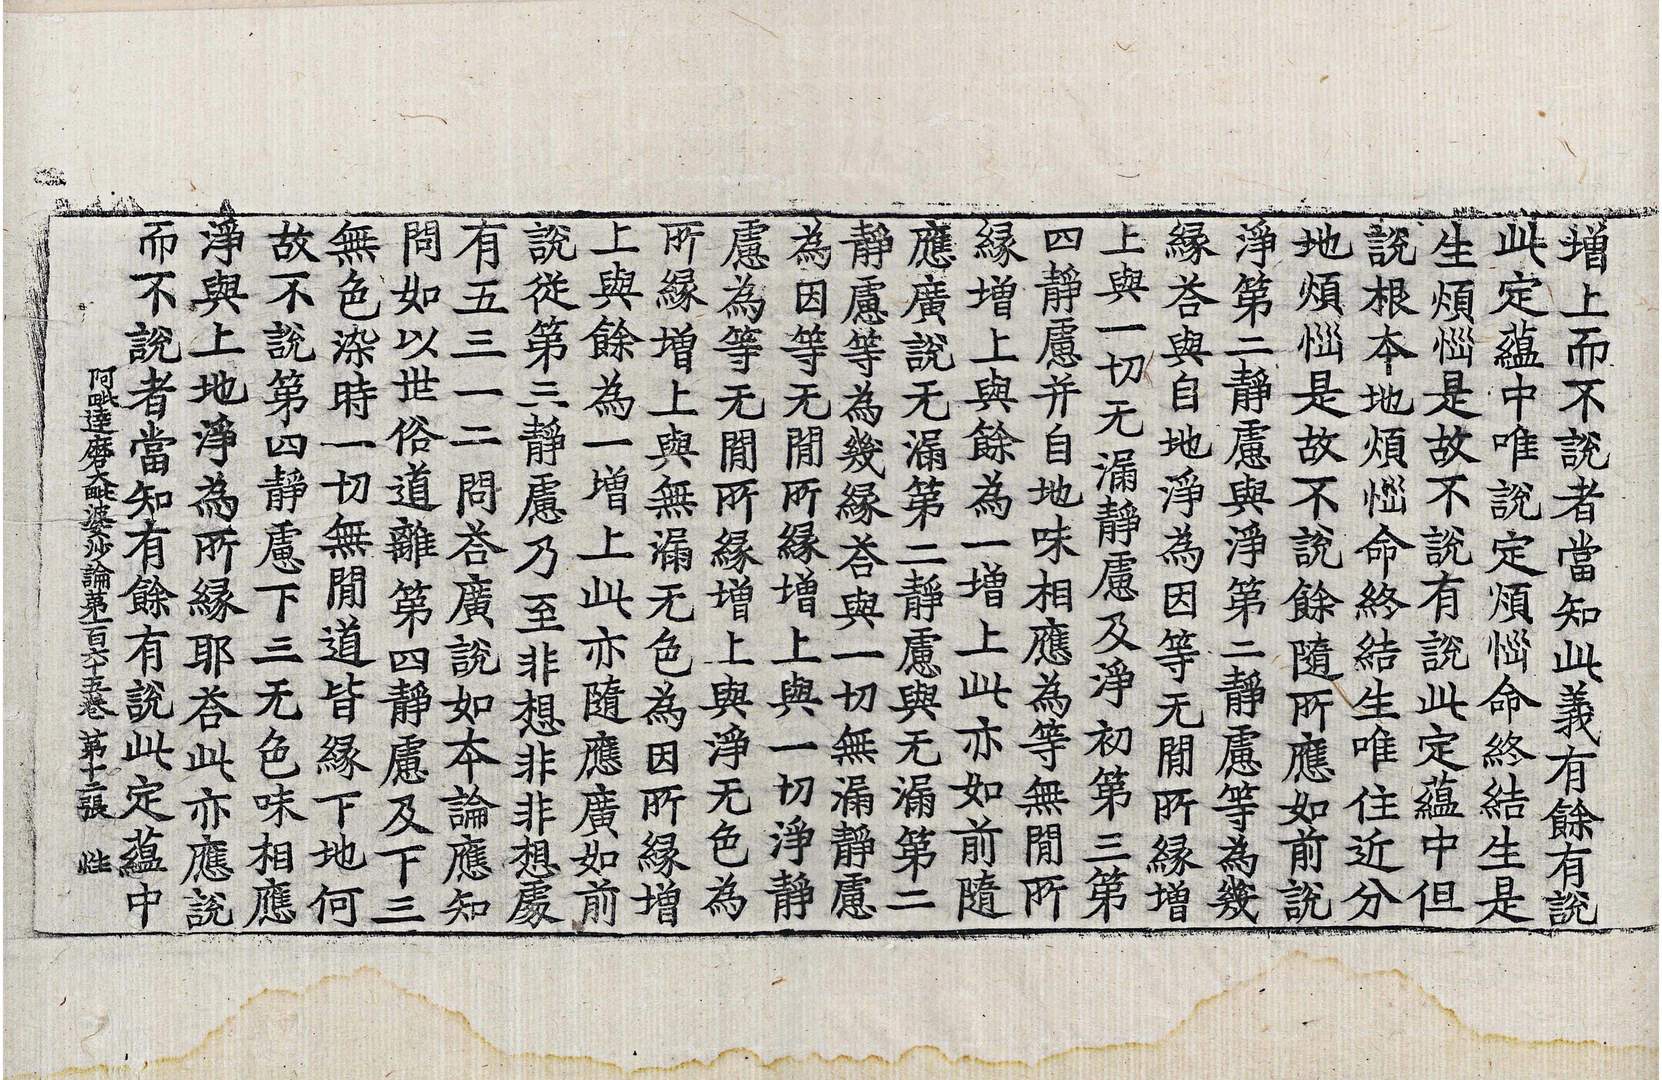 増上而不説者當知此義有餘有説
此定蘊中唯說定煩惱命終結生是
生煩惱是故不說有說此定蘊中但
說根本地煩惱命終結生唯住近分
地煩惱是故不說餘隨所應如前説
淨第二靜慮與淨第二靜慮等為幾
縁荅與自地淨為因等无閒所縁增
上與一切无漏靜慮及淨初第三第
四靜慮并自地味相應為等無閒所
縁增上與餘為一增上此亦如前隨
應廣說无漏第二靜慮與无漏第二
靜慮等為幾縁荅與一切無漏靜慮
為因等无閒所縁增上與一切淨靜
慮為等无閒所縁增上與淨无色為
所縁增上與無漏无色為因所縁增
上與餘為一增上此亦隨應廣如前
說從第三靜慮乃至非想非非想處
有五三一二問荅廣說如本論應知
問如以世俗道離第四靜慮及下三
無色染時一切無閒道皆縁下地何
故不說第四靜慮下三无色味相應
淨與上地淨為所縁耶荅此亦應說
而不說者當知有餘有說此定蘊中
阿毗達磨大毗婆沙論第一百六十五卷 第十二張